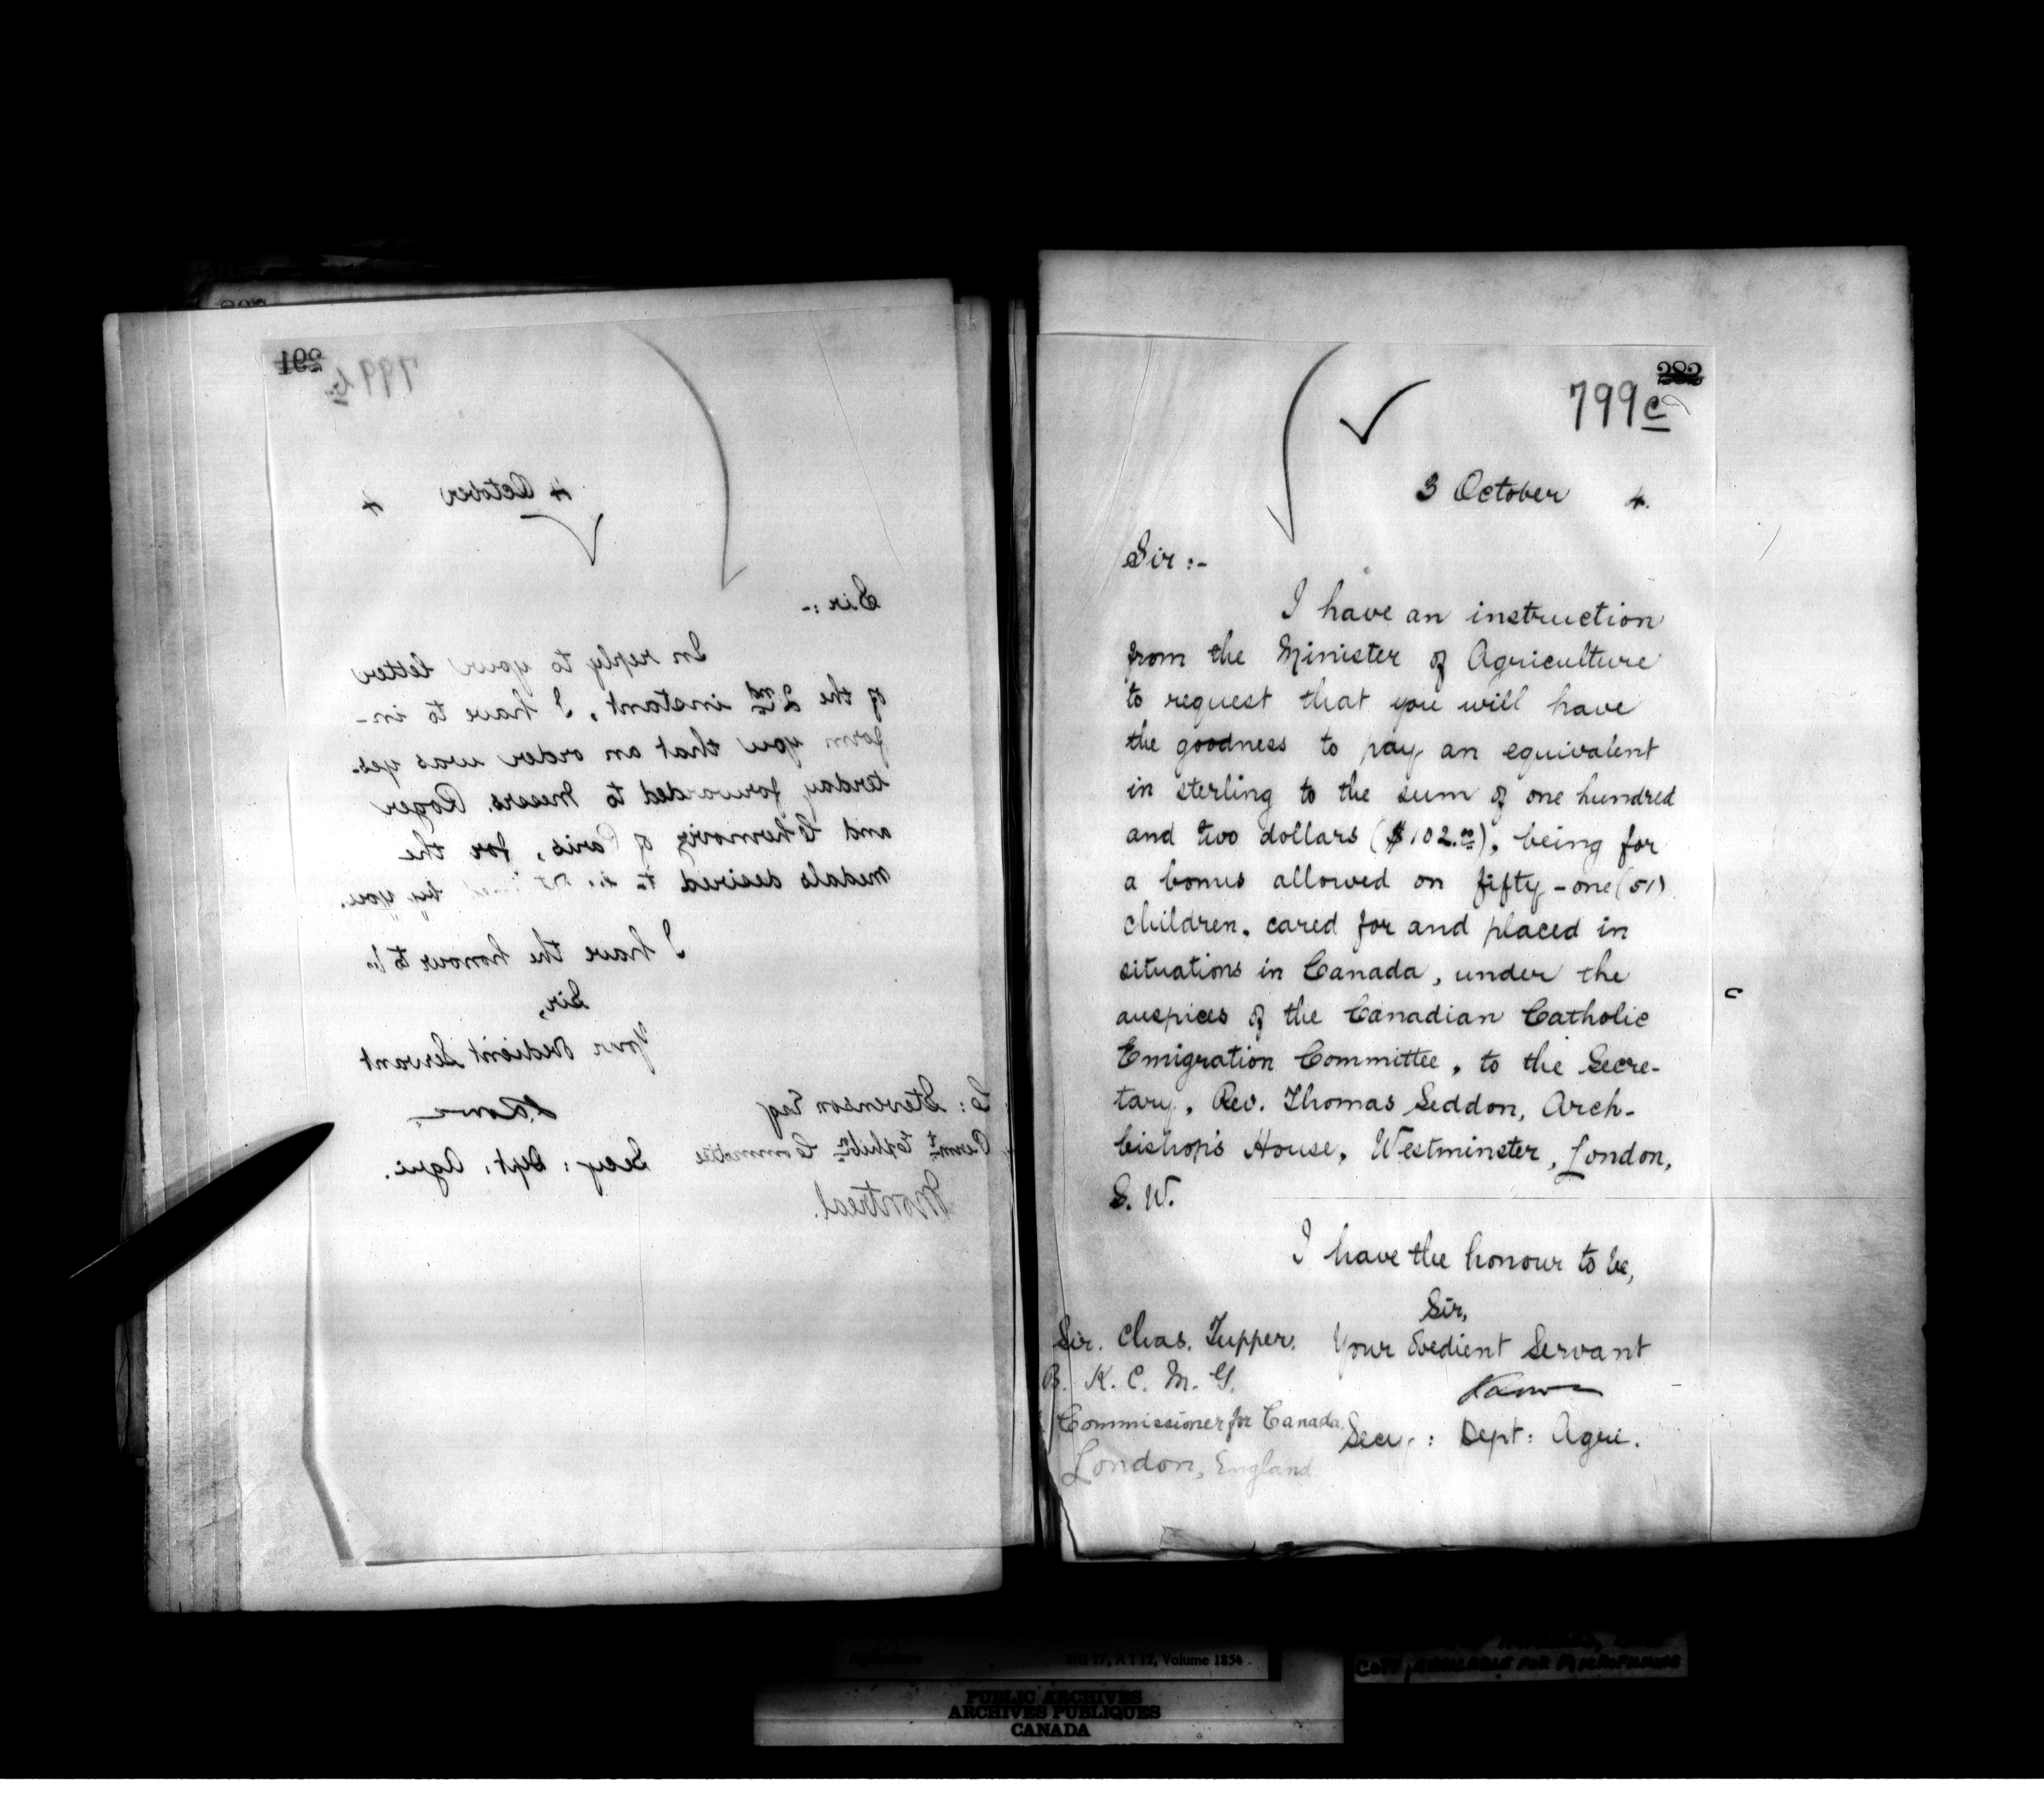 291
799 b
4 October 4
Sir :-
In reply to your letter
of the 2nd instant, I have to in-
form you that an order was yes-
terday forwarded to Messrs. Roger
and Chernoviz of Paris, for the
medals desired to by you.
I have the honour to be
Sir,
Your Obedient Servant
S. C. Stevenson Esq
Permt Exhibn Committee
Secy : Dept : Agri.
Montreal.
282
799 c
3 October 4.
Sir :-
I have an instruction
from the Minister of Agriculture
to request that you will have
the goodness to pay an equivalent
in sterling to the sum of one hundred
and two dollars ($102.00), being for
a bonus allowed on fifty-one (51)
children, cared for and placed in
situations in Canada, under the
auspices of the Canadian Catholic
Emigration Committee, to the Secre-
tary, Rev. Thomas Seddon, Arch-
bishop's House, Westminster, London,
S. W.
I have the honour to be,
Sir,
Your Obedient Servant
Sir. Chas. Tupper.
B. K. C. M. G.
Commissioner for Canada
Secy : Dept : Agri.
London, England
Agriculture RG 17, A I 12, Volume 1854
COPY AVAILABLE FOR MICROFILMING
PUBLIC ARCHIVES
ARCHIVES PUBLIQUES
CANADA